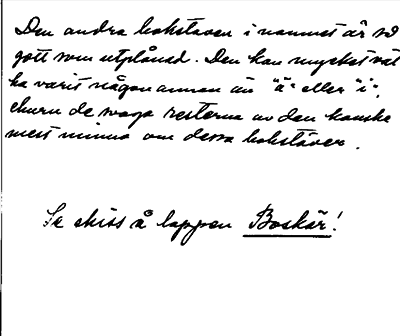 Den andra bokstaven i namnet är så
gott som utplånad. Den kan mycket väl
ha varit någon annan än "ä" eller "i",
churu de svaga resterna av den kanske
mest minna om dessa bokstäver.
Se skiss å lappen Boskär!